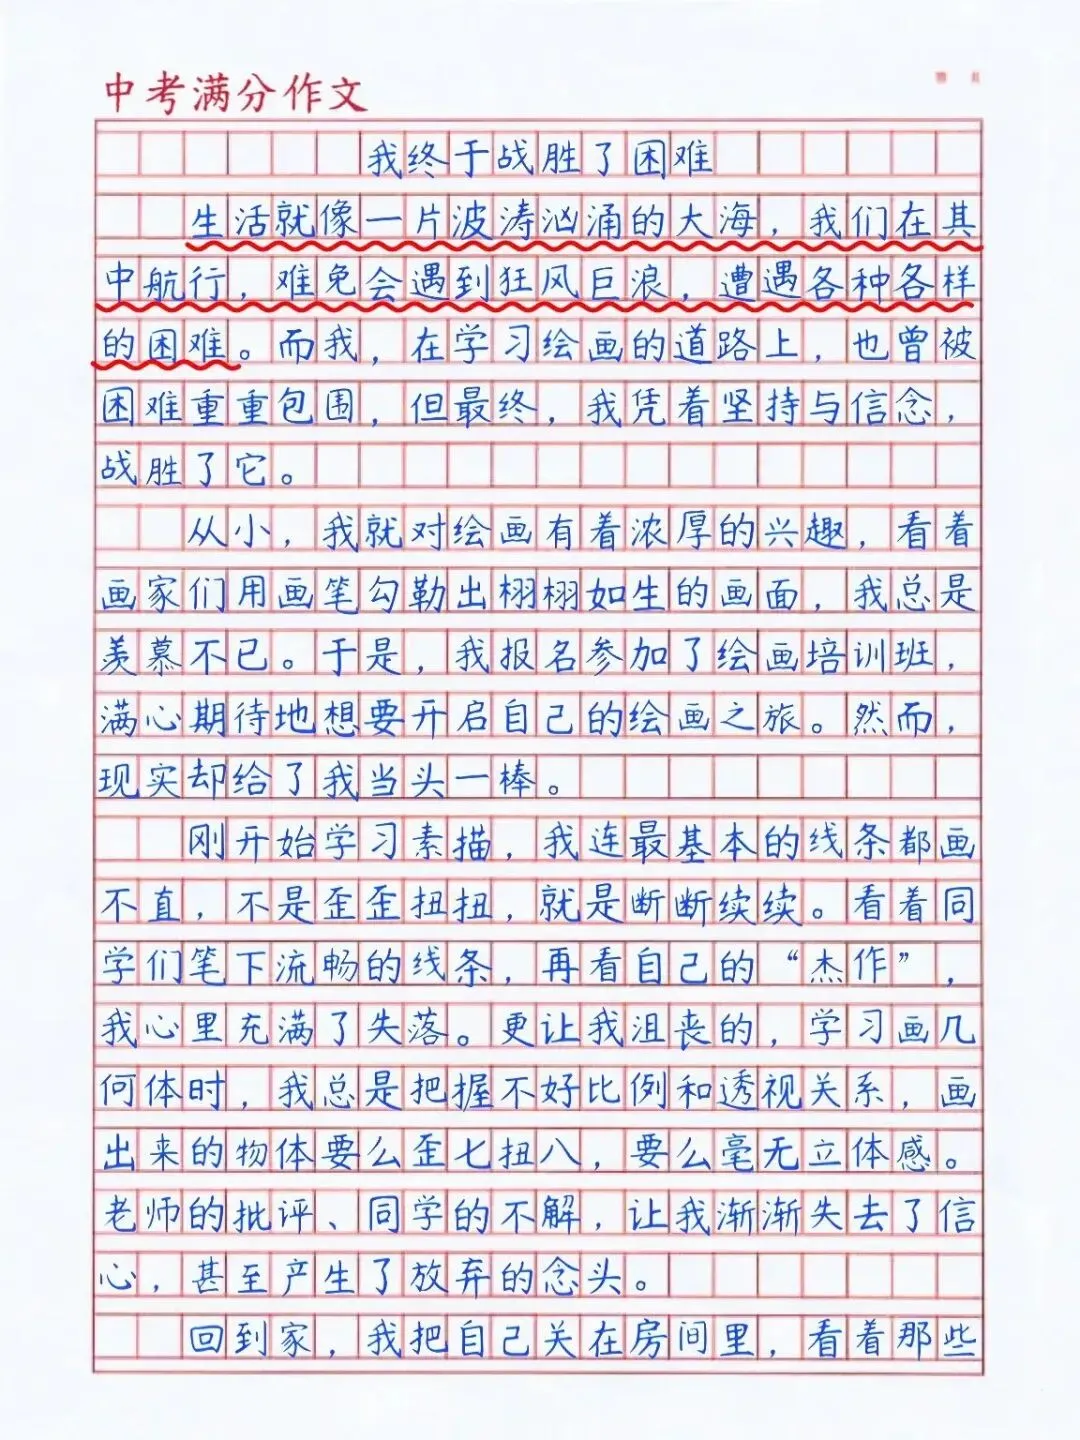 中考满分作文
我终于战胜了困难
生活就像一片波涛汹涌的大海，我们在其
中航行，难免会遇到狂风巨浪，遭遇各种各样
的困难。而我，在学习绘画的道路上，也曾被
困难重重包围，但最终，我凭着坚持与信念，
战胜了它。
从小，我就对绘画有着浓厚的兴趣，看着
画家们用画笔勾勒出栩栩如生的画面，我总是
羡慕不已。于是，我报名参加了绘画培训班，
满心期待地想要开启自己的绘画之旅。然而，
现实却给了我当头一棒。
刚开始学习素描，我连最基本的线条都画
不直，不是歪歪扭扭，就是断断续续。看着同
学们笔下流畅的线条，再看自己的“杰作”，
我心里充满了失落。更让我沮丧的，学习画几
何体时，我总是把握不好比例和透视关系，画
出来的物体要么歪七扭八，要么毫无立体感。
老师的批评、同学的不解，让我渐渐失去了信
心，甚至产生了放弃的念头。
回到家，我把自己关在房间里，看着那些